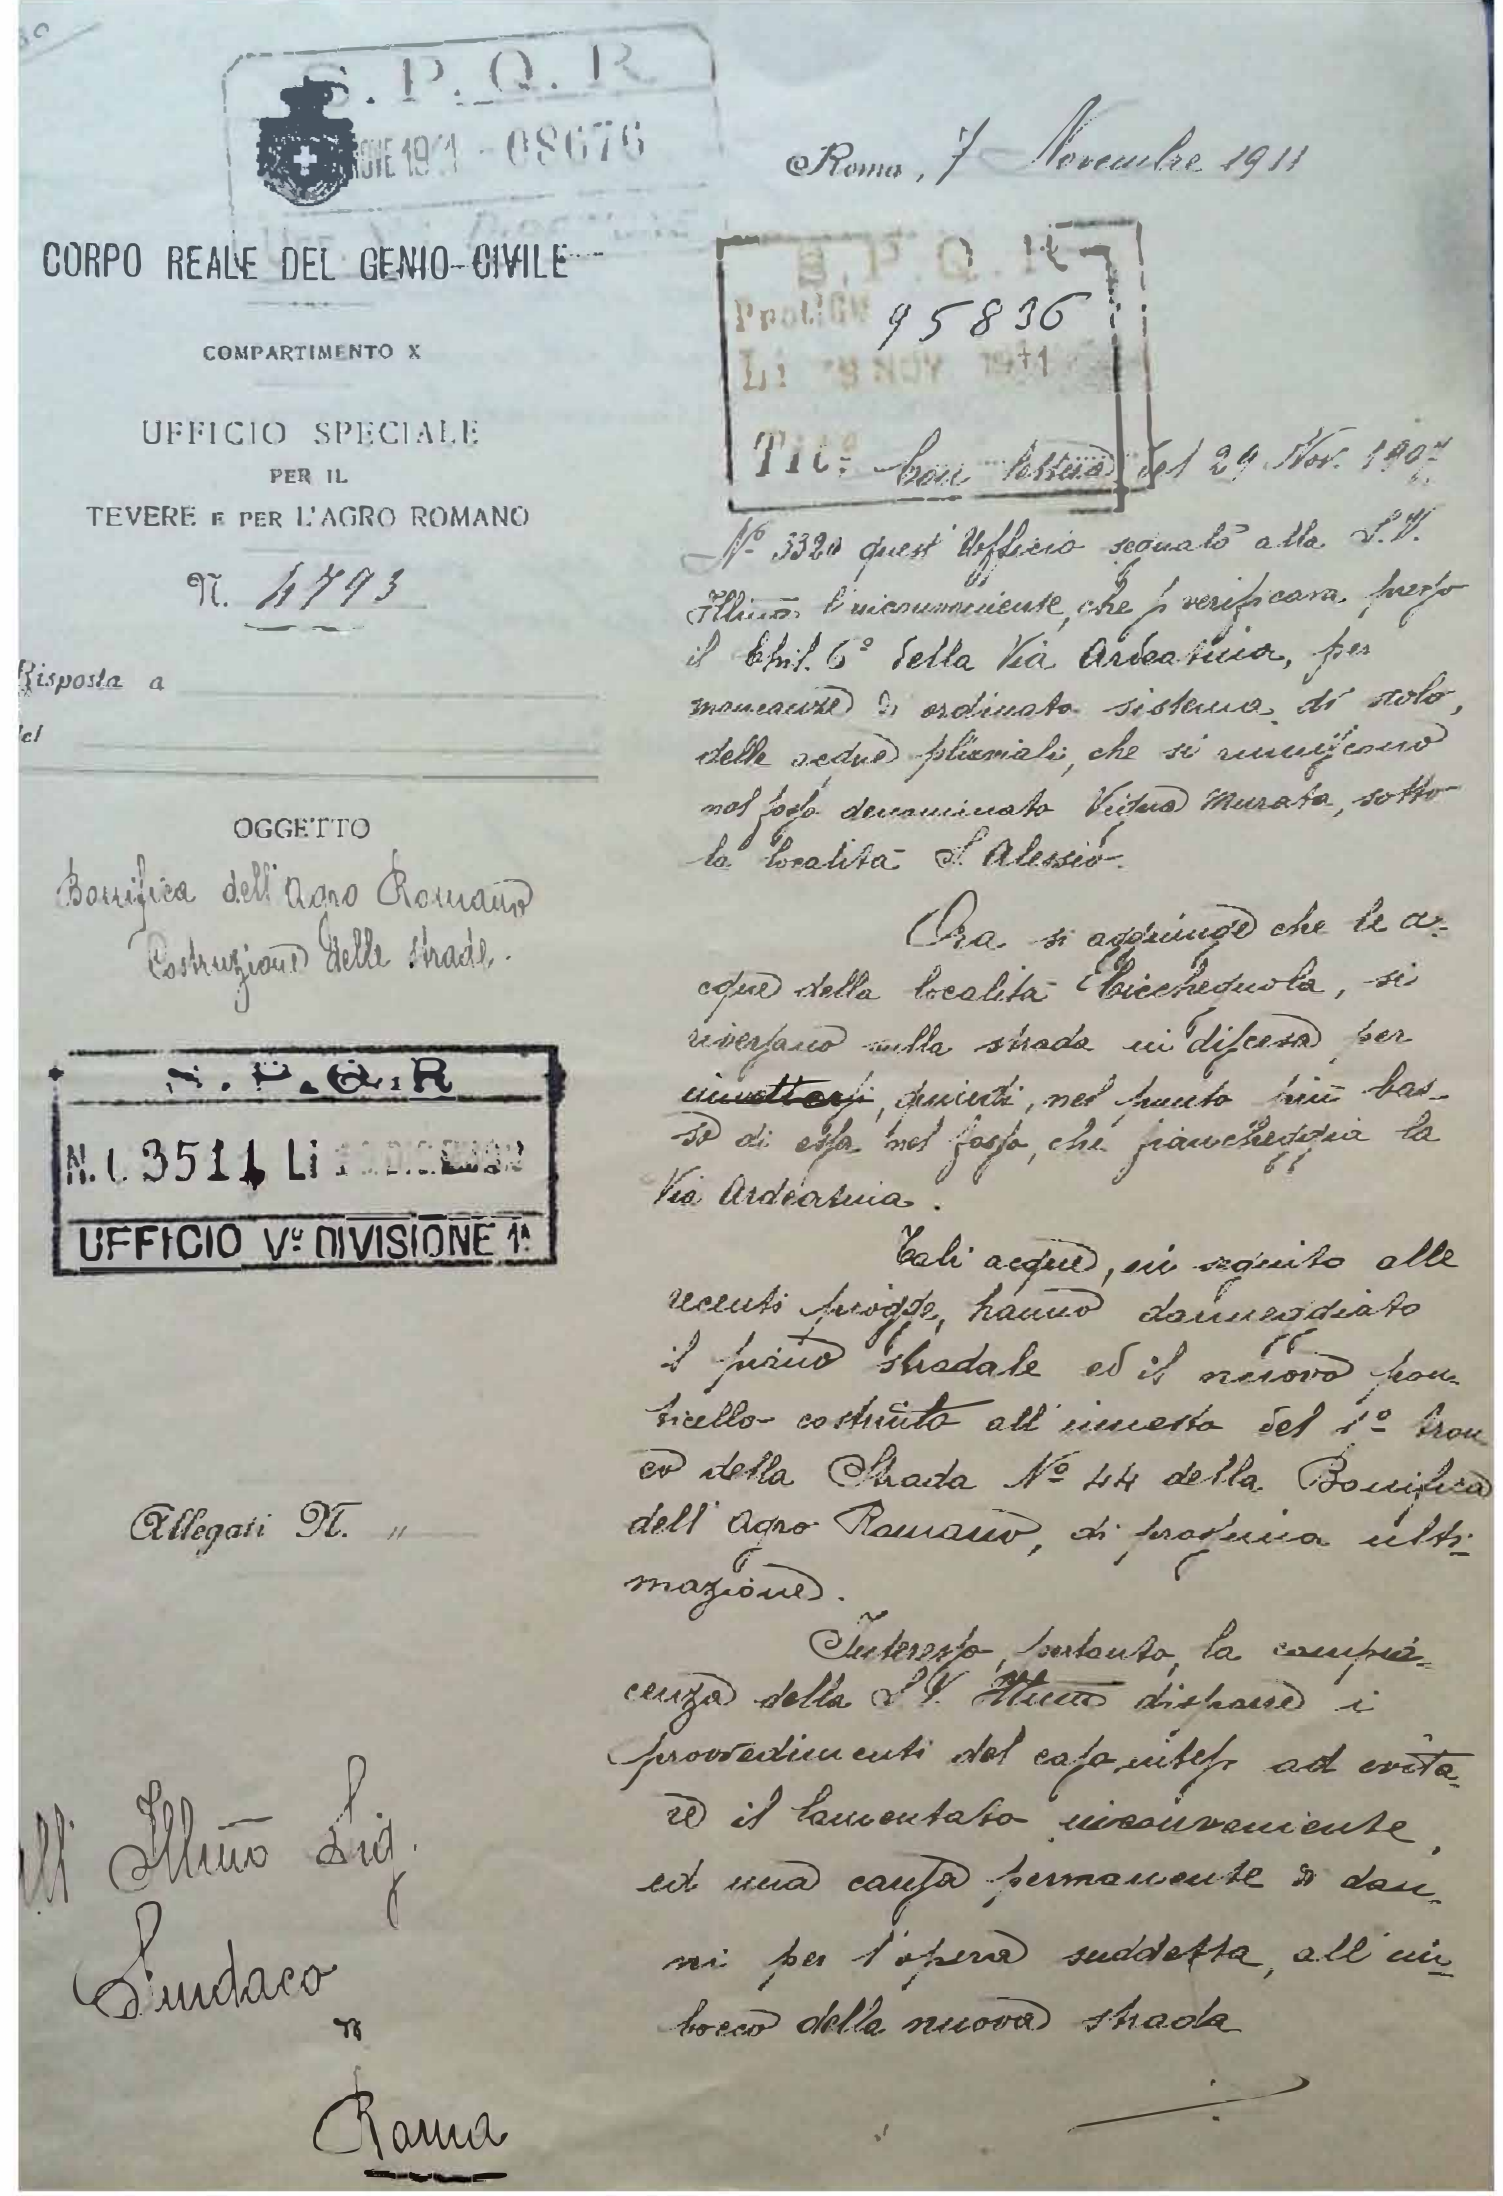 S. P. Q. R
NOVE 1911 - 08676
Roma, 7 Novembre 1911
CORPO REALE DEL GENIO CIVILE
COMPARTIMENTO X
UFFICIO SPECIALE
PER IL
TEVERE E PER L'AGRO ROMANO
N. 4793
Risposta a
del
OGGETTO
Bonifica dell'Agro Romano
Costruzione delle strade.
S. P. Q. R
N. 3511 Li
UFFICIO Vº DIVISIONE 1ª
Allegati N. "
All' Illmo Sig.
Sindaco
di
Roma
S. P. Q. R
Prot. 95836
Li NOV 1911
Tit.
Con lettera del 29 Nov. 1907
Nº 3320 quest'Ufficio segnalò alla S.V.
Illma l'inconveniente, che si verificava presso
il Chil. 6º della Via Ardeatina, per
mancanza di ordinato sistema di scolo,
delle acque pluviali, che si riuniscono
nel fosso denominato Vigna Murata, sotto
la località S. Alessio.
Ora si aggiunge che le a-
cque della località Cicchegnola, si
riversano sulla strada in discesa per
immettersi, quindi, nel punto più bas-
so di essa nel fosso, che fiancheggia la
Via Ardeatina.
Tali acque, in seguito alle
recenti piogge, hanno danneggiato
il piano stradale ed il nuovo pon-
ticello costruito all'innesto del 1º tron-
co della Strada Nº 44 della Bonifica
dell'Agro Romano, di prossima ulti-
mazione.
Interesso, pertanto, la compia-
cenza della S.V. Illma disporre i
provvedimenti del caso, intesi ad evita-
re il lamentato inconveniente,
ed una causa permanente di dan-
ni per l'opera suddetta, all'im-
bocco della nuova strada